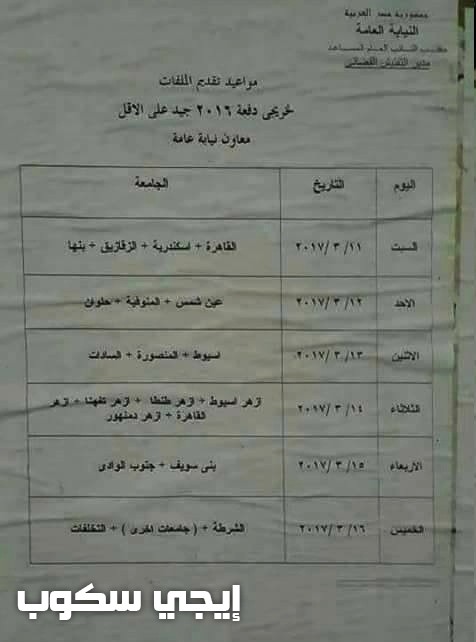 جمهورية مصر العربية
النيابة العامة
مكتب النائب العام المساعد
مدير التفتيش القضائي
مواعيد تقديم الملفات
لخريجى دفعة ٢٠١٦ جيد على الاقل
معاون نيابة عامة
اليوم التاريخ الجامعة
السبت ١١ / ٣ / ٢٠١٧ القاهرة + اسكندرية + الزقازيق + بنها
الاحد ١٢ / ٣ / ٢٠١٧ عين شمس + المنوفية + حلوان
الاثنين ١٣ / ٣ / ٢٠١٧ اسيوط + المنصورة + السادات
الثلاثاء ١٤ / ٣ / ٢٠١٧ ازهر اسيوط + ازهر طنطا + ازهر تفهنا + ازهر
القاهرة + ازهر دمنهور
الاربعاء ١٥ / ٣ / ٢٠١٧ بنى سويف + جنوب الوادى
الخميس ١٦ / ٣ / ٢٠١٧ الشرطة + ( جامعات اخرى ) + التخلفات
إيجي سكوب